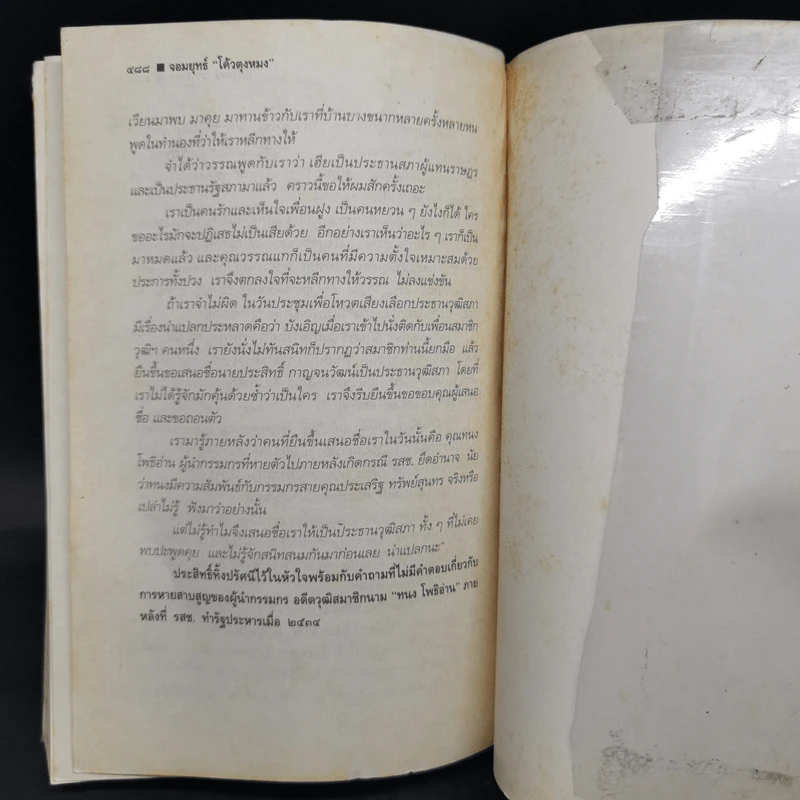 ๔๘๘ ■ จอมยุทธ์ "โค้วตุงหมง"
เวียนมาพบ มาคุย มาทานข้าวกับเราที่บ้านบางขนากหลายครั้งหลายหน
พูดในทำนองที่ว่าให้เราหลีกทางให้
จำได้ว่าวรรณพูดกับเราว่า เฮียเป็นประธานสภาผู้แทนราษฎร
และเป็นประธานรัฐสภามาแล้ว คราวนี้ขอให้ผมสักครั้งเถอะ
เราเป็นคนรักและเห็นใจเพื่อนฝูง เป็นคนหยวน ๆ ยังไงก็ได้ ใคร
ขออะไรมักจะปฏิเสธไม่เป็นเสียด้วย อีกอย่างเราเห็นว่าอะไร ๆ เราก็เป็น
มาหมดแล้ว และคุณวรรณแกก็เป็นคนที่มีความตั้งใจเหมาะสมด้วย
ประการทั้งปวง เราจึงตกลงใจที่จะหลีกทางให้วรรณ ไม่ลงแข่งขัน
ถ้าเราจำไม่ผิด ในวันประชุมเพื่อโหวตเสียงเลือกประธานวุฒิสภา
มีเรื่องน่าแปลกประหลาดคือว่า บังเอิญเมื่อเราเข้าไปนั่งติดกับเพื่อนสมาชิก
วุฒิฯ คนหนึ่ง เรายังนั่งไม่ทันสนิทก็ปรากฏว่าสมาชิกท่านนี้ยกมือ แล้ว
ยืนขึ้นขอเสนอชื่อนายประสิทธิ์ กาญจนวัฒน์เป็นประธานวุฒิสภา โดยที่
เราไม่ได้รู้จักมักคุ้นด้วยซ้ำว่าเป็นใคร เราจึงรีบยืนขึ้นขอขอบคุณผู้เสนอ
ชื่อ และขอถอนตัว
เรามารู้ภายหลังว่าคนที่ยืนขึ้นเสนอชื่อเราในวันนั้นคือ คุณทนง
โพธิอ่าน ผู้นำกรรมกรที่หายตัวไปภายหลังเกิดกรณี รสช. ยึดอำนาจ นัย
ว่าทนงมีความสัมพันธ์กับกรรมกรสายคุณประเสริฐ ทรัพย์สุนทร จริงหรือ
เปล่าไม่รู้ ฟังมาว่าอย่างนั้น
แต่ไม่รู้ทำไมจึงเสนอชื่อเราให้เป็นประธานวุฒิสภา ทั้ง ๆ ที่ไม่เคย
พบปะพูดคุย และไม่รู้จักสนิทสนมกันมาก่อนเลย น่าแปลกนะ"
ประสิทธิ์ทิ้งปริศนีไว้ในหัวใจพร้อมกับคำถามที่ไม่มีคำตอบเกี่ยวกับ
การหายสาบสูญของผู้นำกรรมกร อดีตวุฒิสมาชิกนาม "ทนง โพธิอ่าน" ภาย
หลังที่ รสช. ทำรัฐประหารเมื่อ ๒๕๓๔